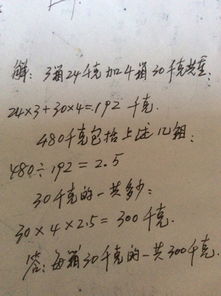 解：3箱24千克加4箱30千克共重：
24×3+30×4=192 千克.
480千克包括上述几组：
480÷192=2.5
30千克的一共多少：
30×4×2.5=300千克.
答：每箱30千克的一共300千克.